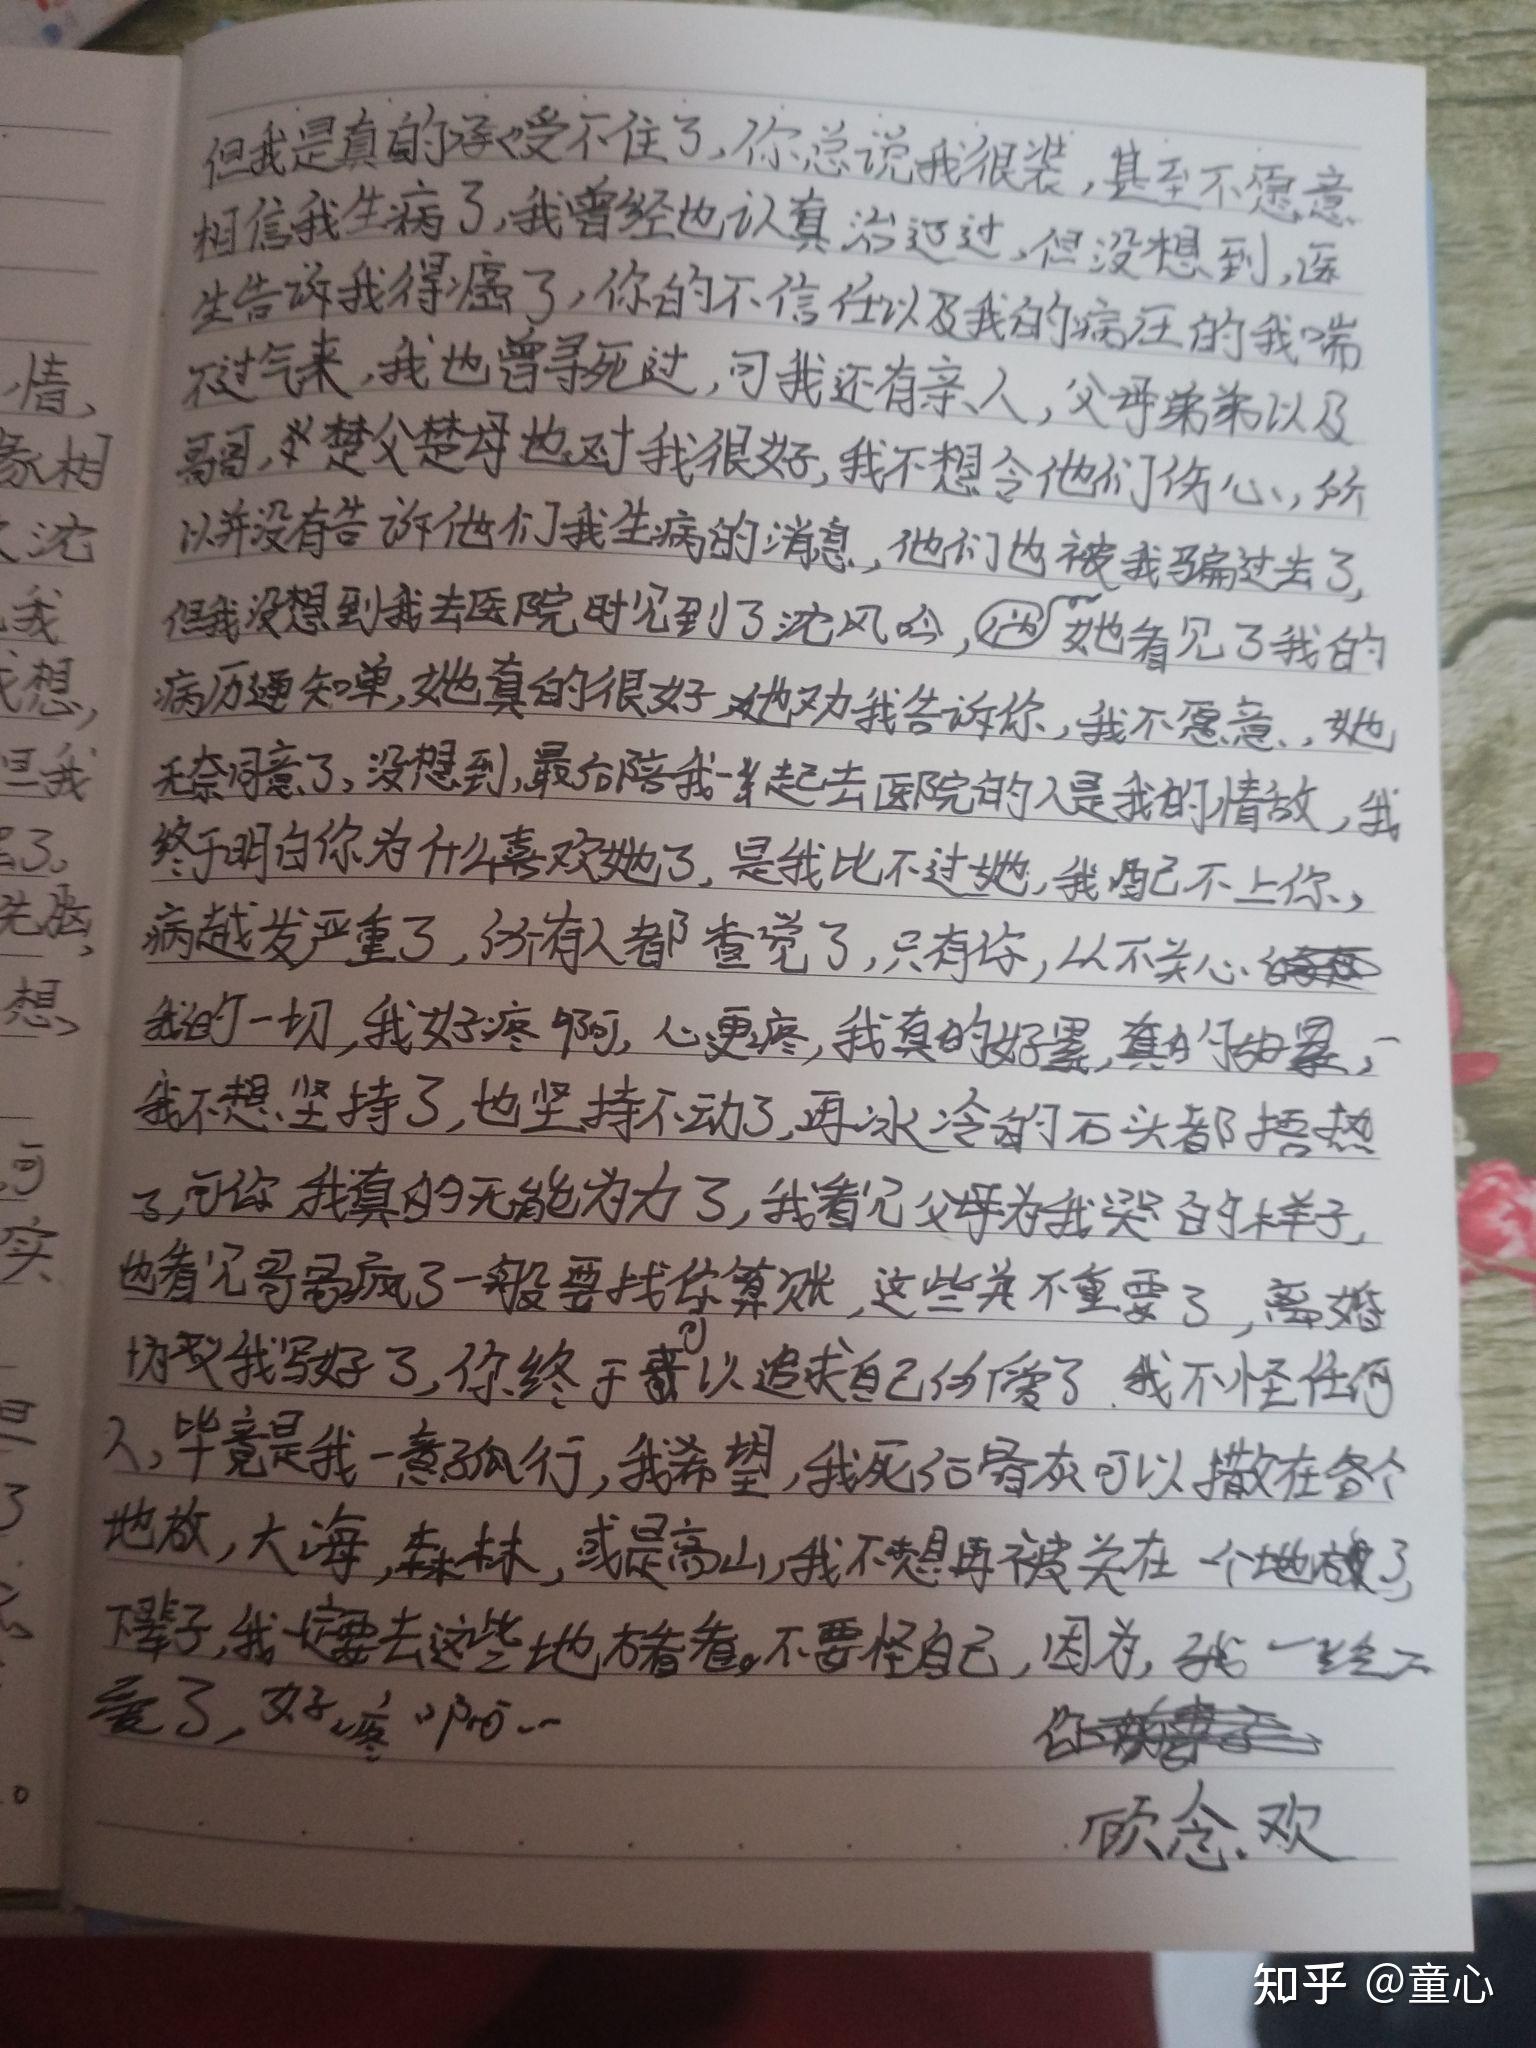 情,
象相
沈
我
想,
但我
了。
洗脑,
想,
可
实
是
了
但我是真的承受不住了,你总说我很装,甚至不愿意
相信我生病了,我曾经也认真治过,但没想到,医
生告诉我得癌了,你的不信任以及我的病压的我喘
不过气来,我也曾寻死过,可我还有亲人,父母弟弟以及
哥哥,楚父楚母也对我很好,我不想令他们伤心,所
以并没有告诉他们我生病的消息,他们也被我骗过去了,
但我没想到我去医院时见到了沈风吟,她看见了我的
病历通知单,她真的很好,她劝我告诉你,我不愿意,她
无奈同意了,没想到,最后陪我一起去医院的人是我的情敌,我
终于明白你为什么喜欢她了,是我比不过她,我配不上你,
病越发严重了,所有人都查觉了,只有你,从不关心
我的一切,我好疼啊,心更疼,我真的好累,真的好累,
我不想坚持了,也坚持不动了,再冰冷的石头都捂热
了,可你,我真的无能为力了,我看见父母为我哭的样子,
也看见哥哥疯了一般要找你算账,这些并不重要了,离婚
协议我写好了,你终于可以追求自己所爱了,我不怪任何
人,毕竟是我一意孤行,我希望,我死后骨灰可以撒在各个
地放,大海,森林,或是高山,我不想再被关在一个地放了,
下辈子,我一定要去这些地方看看。不要怪自己,因为,我一点也不
爱了,好疼啊…
你
顾念欢
知乎 @童心